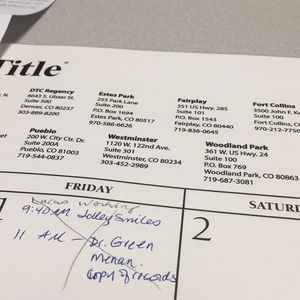 Title
DTC Regency
4643 S. Ulster St.
Suite 500
Denver, CO 80237
303-889-8200
Estes Park
255 Park Lane
Suite 200
P.O. Box 1694
Estes Park, CO 80517
970-586-6626
Fairplay
351 US Hwy. 285
Suite 101
P.O. Box 1543
Fairplay, CO 80440
719-836-0645
Fort Collins
3500 John F. Ke
Suite 100
Fort Collins, CO
970-212-7750
N.
eet
Pueblo
200 W. City Ctr. Dr.
Suite 200A
Pueblo, CO 81003
719-544-0837
Westminster
1120 W. 122nd Ave.
Suite 301
Westminster, CO 80234
303-452-2989
Woodland Park
361 W. US Hwy. 24
Suite 100
P.O. Box 769
Woodland Park, CO 80863
719-687-3081
FRIDAY
SATUR
1
working
9:40 am Jolley Smiles
11 AM - Dr. Green
copy of records
2